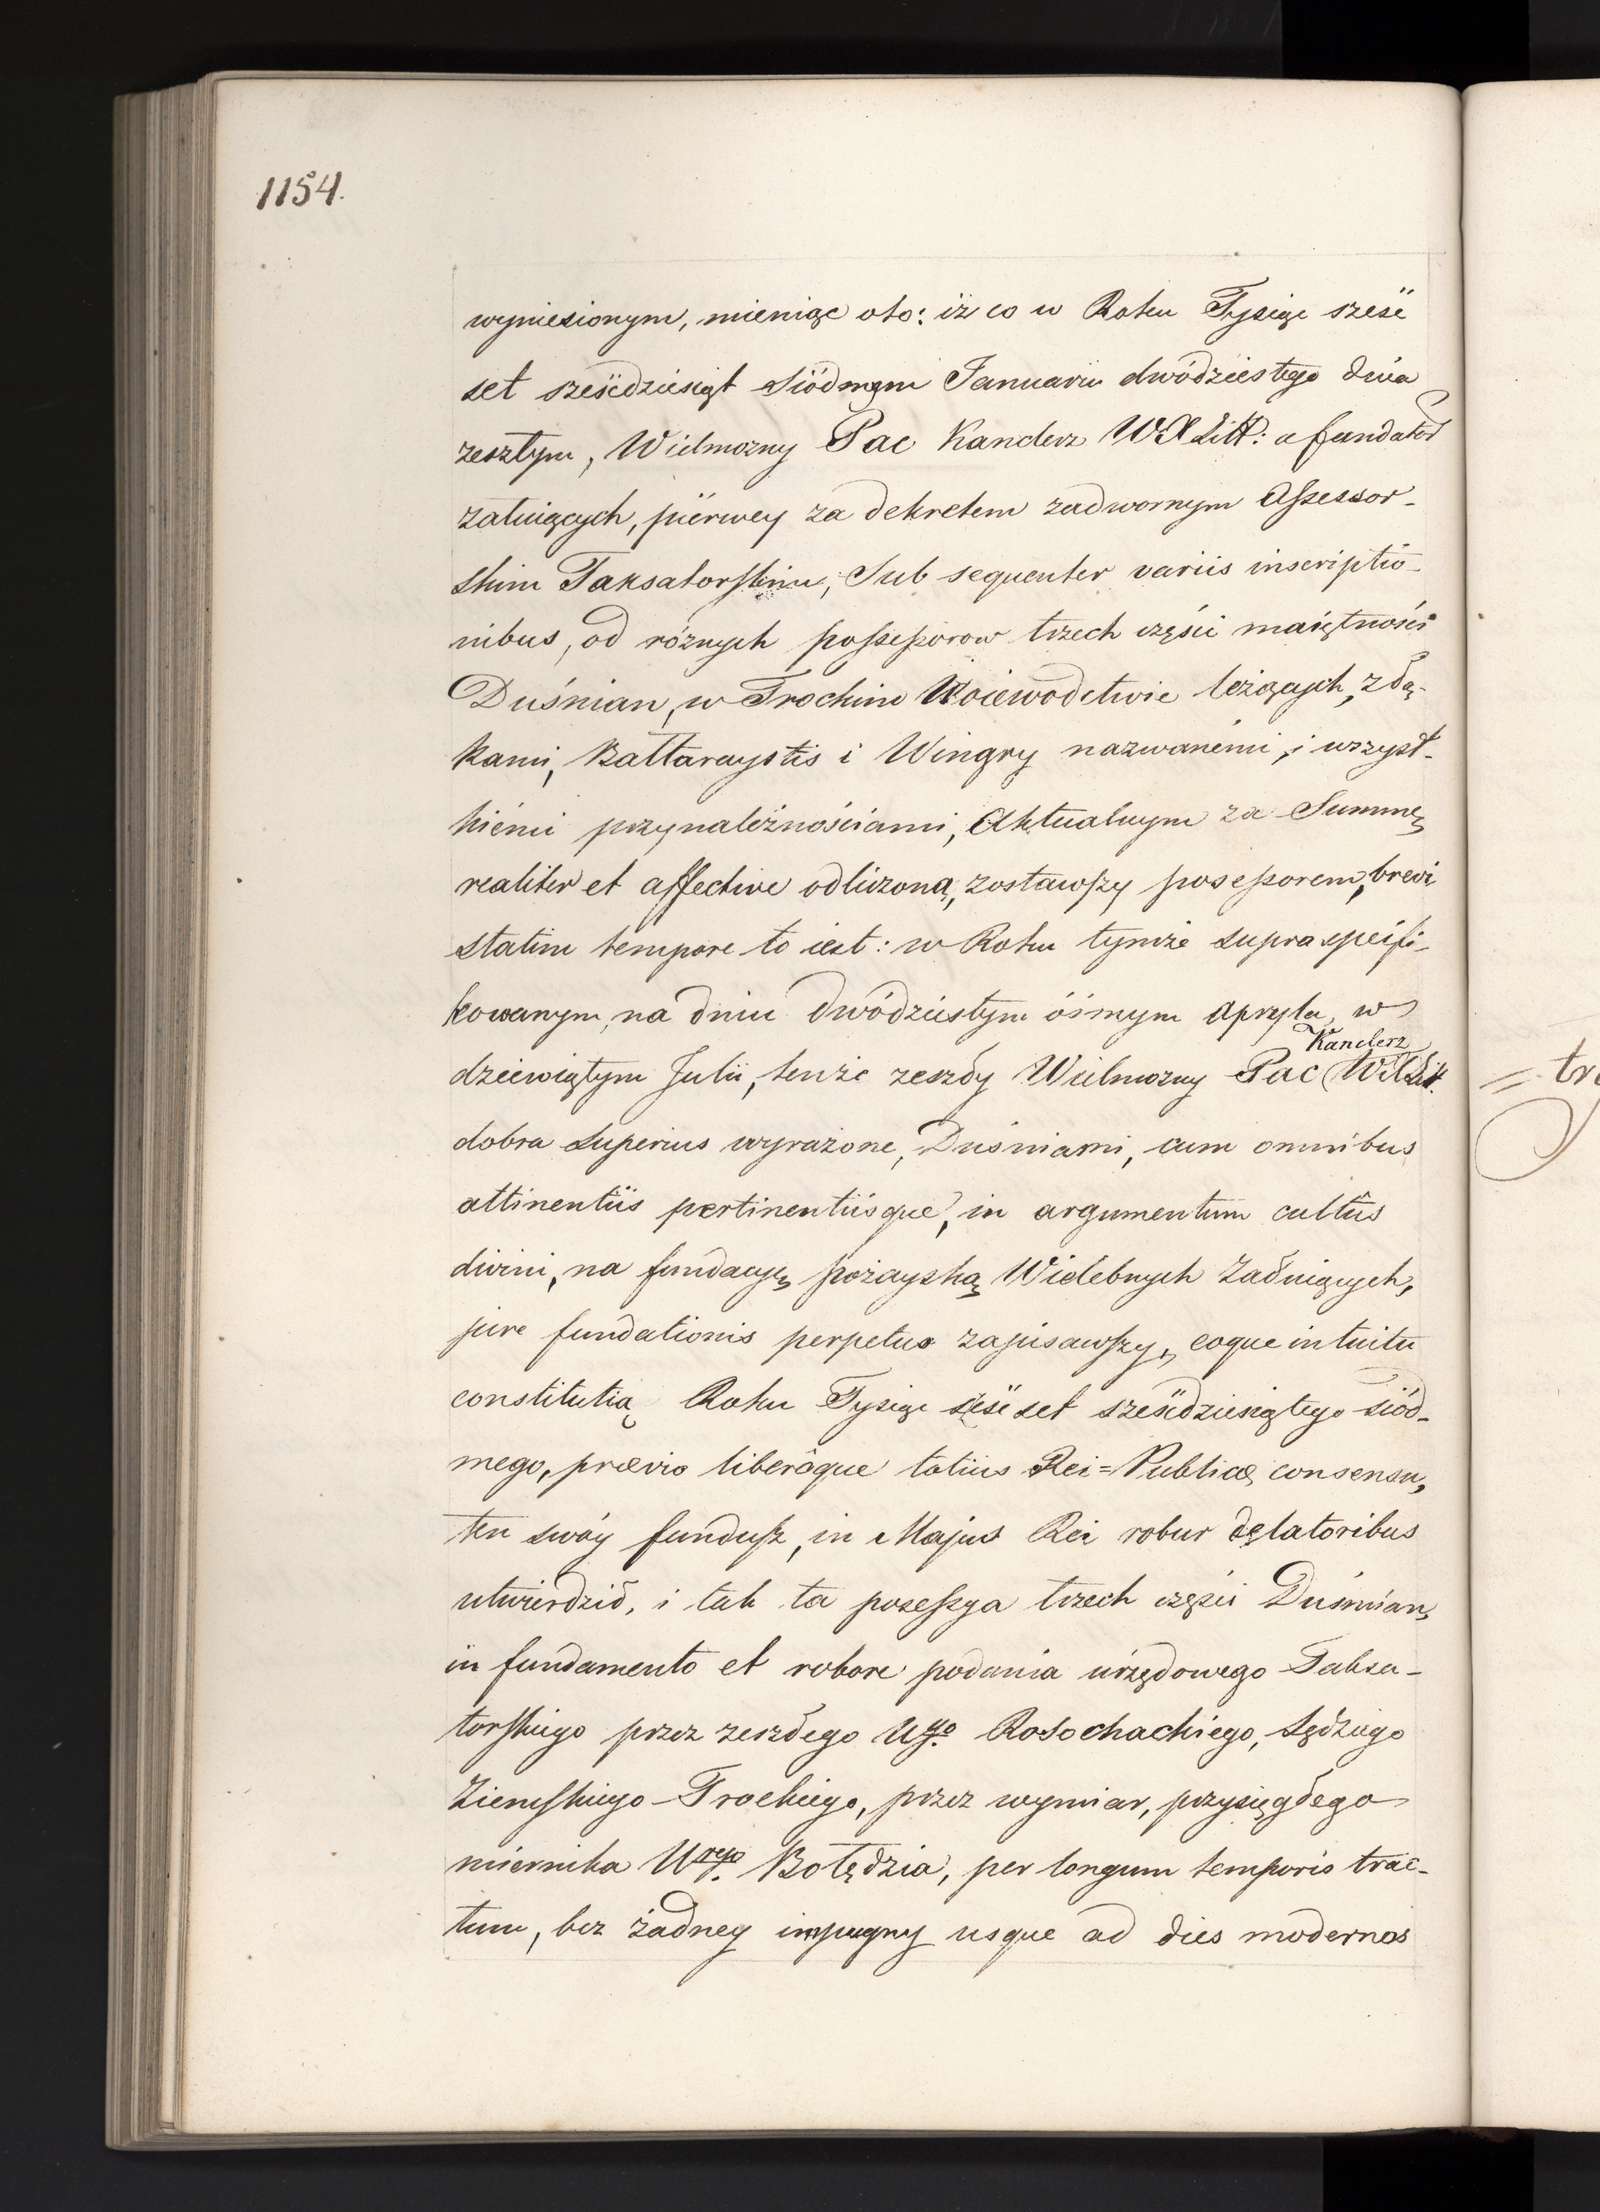 1154.
wyniesionym, mieniąc oto: iż co w Roku Tysiąc sześć
set sześćdziesiąt Siódmym Januarii dwódziestego dnia
zeszłym, Wielmożny Pac Kanclerz W X Litt: a fundator
żałuiących, piérwey za dekretem zadwornym Assessor-
skim Taksatorskim, Sub sequenter variis inscriptio-
nibus, od róznych possessorow trzech części maiętności
Duśnian, w Trockim Woiewodctwie leżących, z łą-
kami, Battaraystis i Wingry nazwanémi, i wszyst-
kiémi przynależnościami, Aktualnym za Summę
realiter et affective odliczoną, zostawszy posessorem, brevi
statim tempore to iest: w Roku tymże supra speifi-
kowanym, na dniu dwódziestym óśmym apryla, w
Kanclerz
dziewiątym Julii, tenże zeszły Wielmożny Pac W X Litt.
dobra superius wyrażone, Duśniami, cum omnibus
attinentiis pertinentiisque, in argumentum cultûs
divini, na fundacyę pożayską Wielebnych żałuiących,
jure fundationis perpetuo zapisawszy, eoque intuitu
constitutią Roku Tysiąc sześć set sześćdziesiątego siód-
mego, prævio liberôque totius Rei=Publicæ consensu,
ten swóy fundusz, in Majus Rei robur delatoribus
utwierdził, i tak ta posessya trzech części Duśnian,
in fundamento et robore podania urzędowego Taksa-
torskiego przez zeszłego Ugo. Rosochackiego, Sędziego
Ziemskiego Trockiego, przez wymiar, przysięgłego
miernika Urego. Bołędzia, per longum temporis trac-
tum, bez żadney impugny usque ad dies modernos